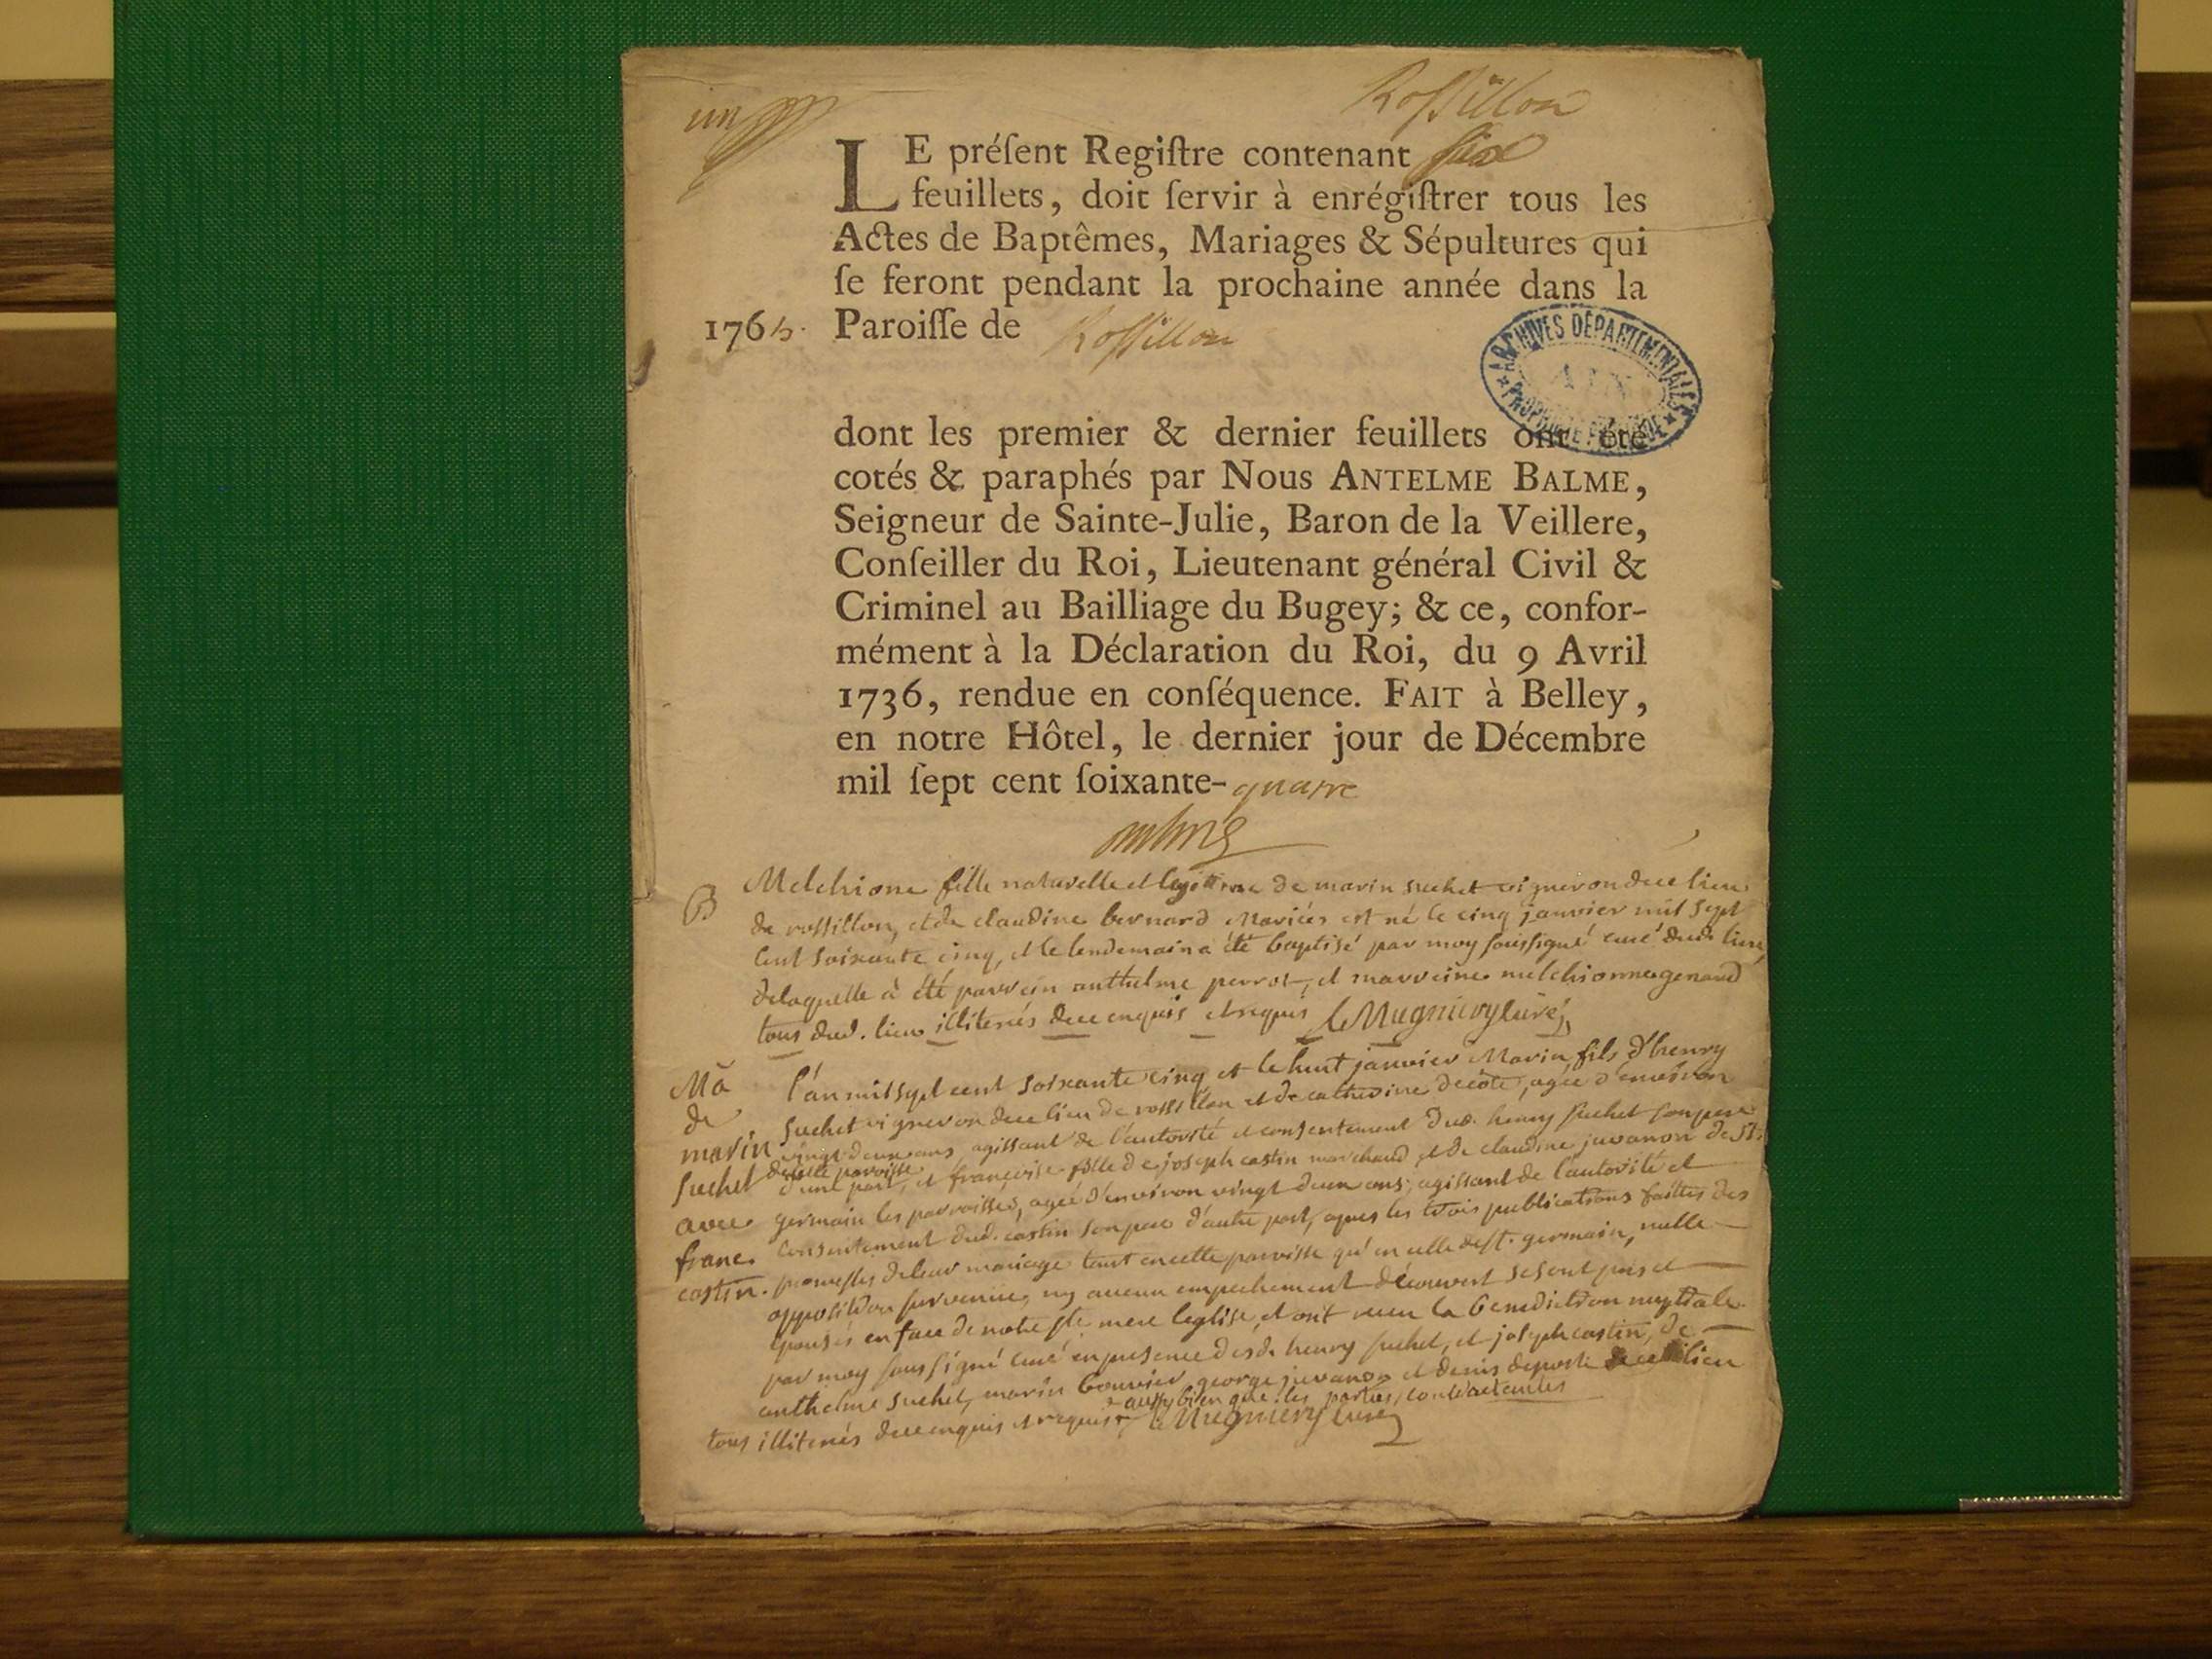 un
Rossillon
LE préſent Regiſtre contenant six
feuillets, doit ſervir à enrégiſtrer tous les
Actes de Baptêmes, Mariages & Sépultures qui
ſe feront pendant la prochaine année dans la
1765. Paroiſſe de Rossillon
ARCHIVES DÉPARTEMENTALES
AIN
dont les premier & dernier feuillets ont été
cotés & paraphés par Nous ANTELME BALME,
Seigneur de Sainte-Julie, Baron de la Veillere,
Conſeiller du Roi, Lieutenant général Civil &
Criminel au Bailliage du Bugey; & ce, confor-
mément à la Déclaration du Roi, du 9 Avril
1736, rendue en conſéquence. FAIT à Belley,
en notre Hôtel, le dernier jour de Décembre
mil ſept cent ſoixante-quatre
B
Melchione fille naturelle et legitime de marin suchet vigneron de ce lieu
de rossillon, et de claudine bernard Mariés est né le cinq janvier mil sept
cent soixante cinq, et le lendemain a été baptisé par moy soussigné curé dud. lieu,
de laquelle à été parrein anthelme perrot, et marreine melchionne genand
tous dud. lieu illiterés de ce enquis et requis Le Mugniery curé
Ma de marin suchet avec franc. castin.
l'an mil sept cent soixante cinq et le huit janvier Marin fils d'henry
suchet vigneron de ce lieu de rossillon et de catherine decote, agée d'environ
vingt deux ans, agissant de l'autorité et consentement dud. henry suchet son pere
de cette paroisse
d'une part, et françoise fille de joseph castin marchand et de claudine juvanon de St.
germain les parroisses, agée d'environ vingt deux ans, agissant de l'autorité et
consentement dud. castin son pere d'autre part, apres les trois publications faittes des
promesses de leur mariage tant en cette paroisse qu'en celle de st. germain, nulle
opposition survenue, ny aucun empechement découvert se sont pris et
épousés en face de notre ste mere l'eglise, et ont receu la benediction nuptiale
par moy soussigné curé en presence desd. henry suchet, et joseph castin, de
anthelme suchet, marin bouvier, george juvanon et denis deposte de ce lieu
aussy bien que les parties contractantes
tous illiterés de ce enquis et requis Le Mugniery curé